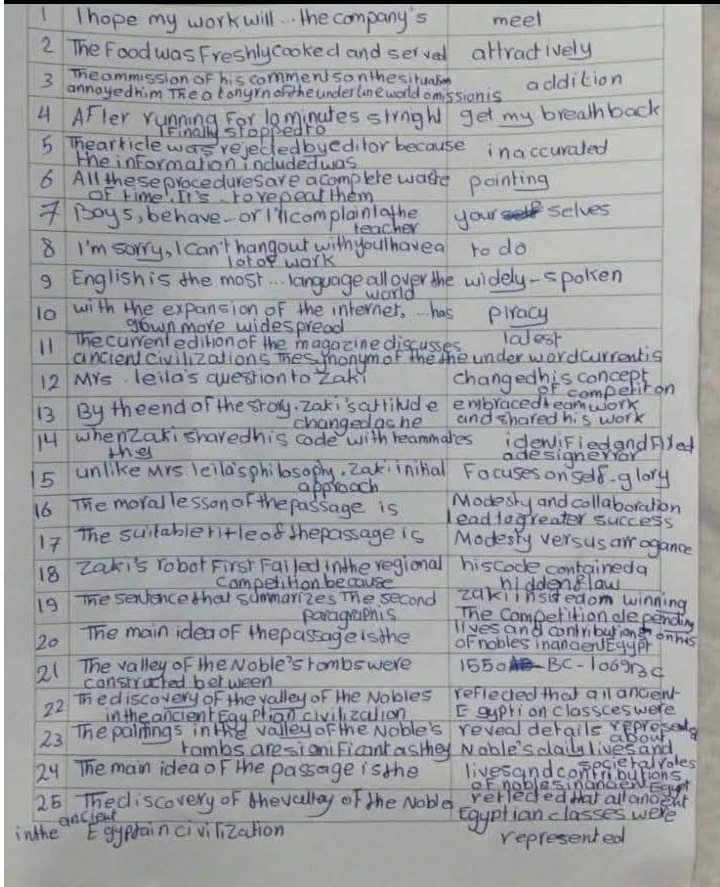 1 I hope my work will ... the company's meet
2 The Food was Freshly cooked and served attractively
3 The ommission of his comments on the situation
annoyed him The atonyrn of the underline world omission is addition
4 AFler running For 10 minutes strnight get my breath back
I Finally stopped to
5 The article was rejected by editor because inaccurated
the information included was
6 All these procedures are a complete waste pointing
of time'. It's .. to repeat them
7 Boys, behave .. or I'll complain to the your selves
teacher
8 I'm sorry, I can't hangout with you I have a to do
lot of work
9 English is the most ... language all over the widely-spoken
world
10 with the expansion of the internet, ... has piracy
grown more widespread
11 The current edition of the magazine discusses latest
ancient civilizations The synonym of the the under word current is
12 Mrs. leila's question to Zaki changed his concept
of competiton
13 By the end of the story. Zaki's attitude embraced teamwork
changed as he and shared his work
14 when Zaki shared his code with teammates identified and Fixed
they a design error
15 unlike Mrs. leila's philosophy, Zaki initial Focuses on self-glory
approach
16 The moral lesson of the passage is Modesty and collaboration
lead to greater success
17 The suitable title of the passage is Modesty versus arrogance
18 Zaki's robot First Failed in the regional his code contained a
Competition because hidden flaw
19 The sentence that summarizes The second zaki insisted on winning
paragraph is The Competition depending
on his
20 The main idea of the passage is the lives and contributions
of nobles in ancient Egypt
21 The valley of the Noble's tombs were 1550 BC - 1069 BC
constructed between
22 The discovery of the valley of the Nobles reflected that all ancient
in the ancient Egyptian civilization Egyption classces were
represents
23 The paintings in the valley of the Noble's reveal details about
tombs are significant as they Noble's daily lives and
societal roles
24 The main idea of the passage is the lives and contributions
of nobles in ancient Egypt
25 The discovery of the valley of the Noble reflected that all ancient
in the ancient Egyptain civilization Egyptian classes were
represented